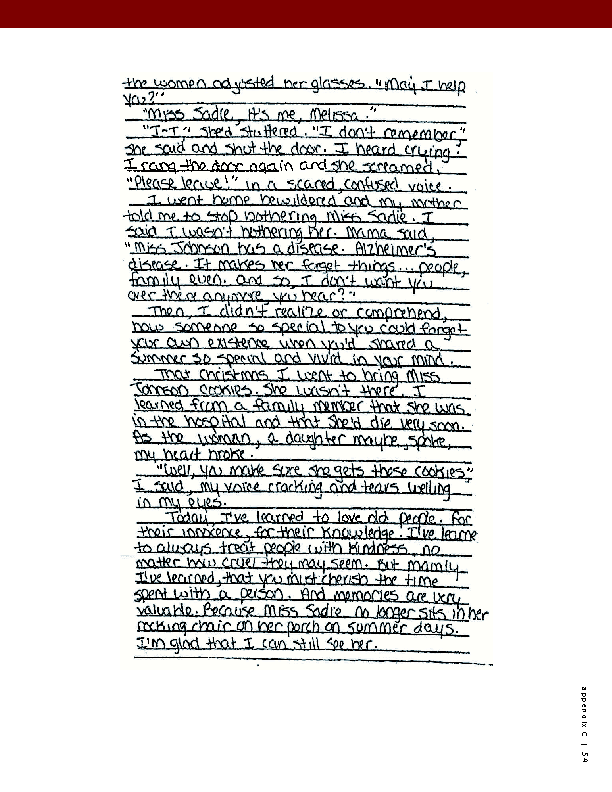 the women adjusted her glasses. "May I help
you?"
"Miss Sadie, it's me, Melissa."
"I-I," She'd stuttered. "I don't remember,"
she said and shut the door. I heard crying.
I rang the door again and she screamed,
"Please leave!" in a scared, confused voice.
I went home bewildered and my mother
told me to stop bothering Miss Sadie. I
said I wasn't bothering her. Mama said,
"Miss Johnson has a disease. Alzheimer's
disease. It makes her forget things... people,
family even. And so, I don't want you
over there anymore, you hear?"
Then, I didn't realize or comprehend,
how someone so special to you could forget
your own existence when you'd shared a
summer so special and vivid in your mind.
That Christmas I went to bring Miss
Johnson cookies. She wasn't there. I
learned from a family member that she was
in the hospital and that she'd die very soon.
As the woman, a daughter maybe, spoke,
my heart broke.
"Well, you make sure she gets these cookies"
I said, my voice cracking and tears welling
in my eyes.
Today, I've learned to love old people. For
their innocence, for their knowledge. I've learne
to always treat people with kindness, no
matter how cruel they may seem. But mainly
I've learned, that you must cherish the time
spent with a person. And memories are very
valuable. Because Miss Sadie no longer sits in her
rocking chair on her porch on summer days.
I'm glad that I can still see her.
appendix C | 54